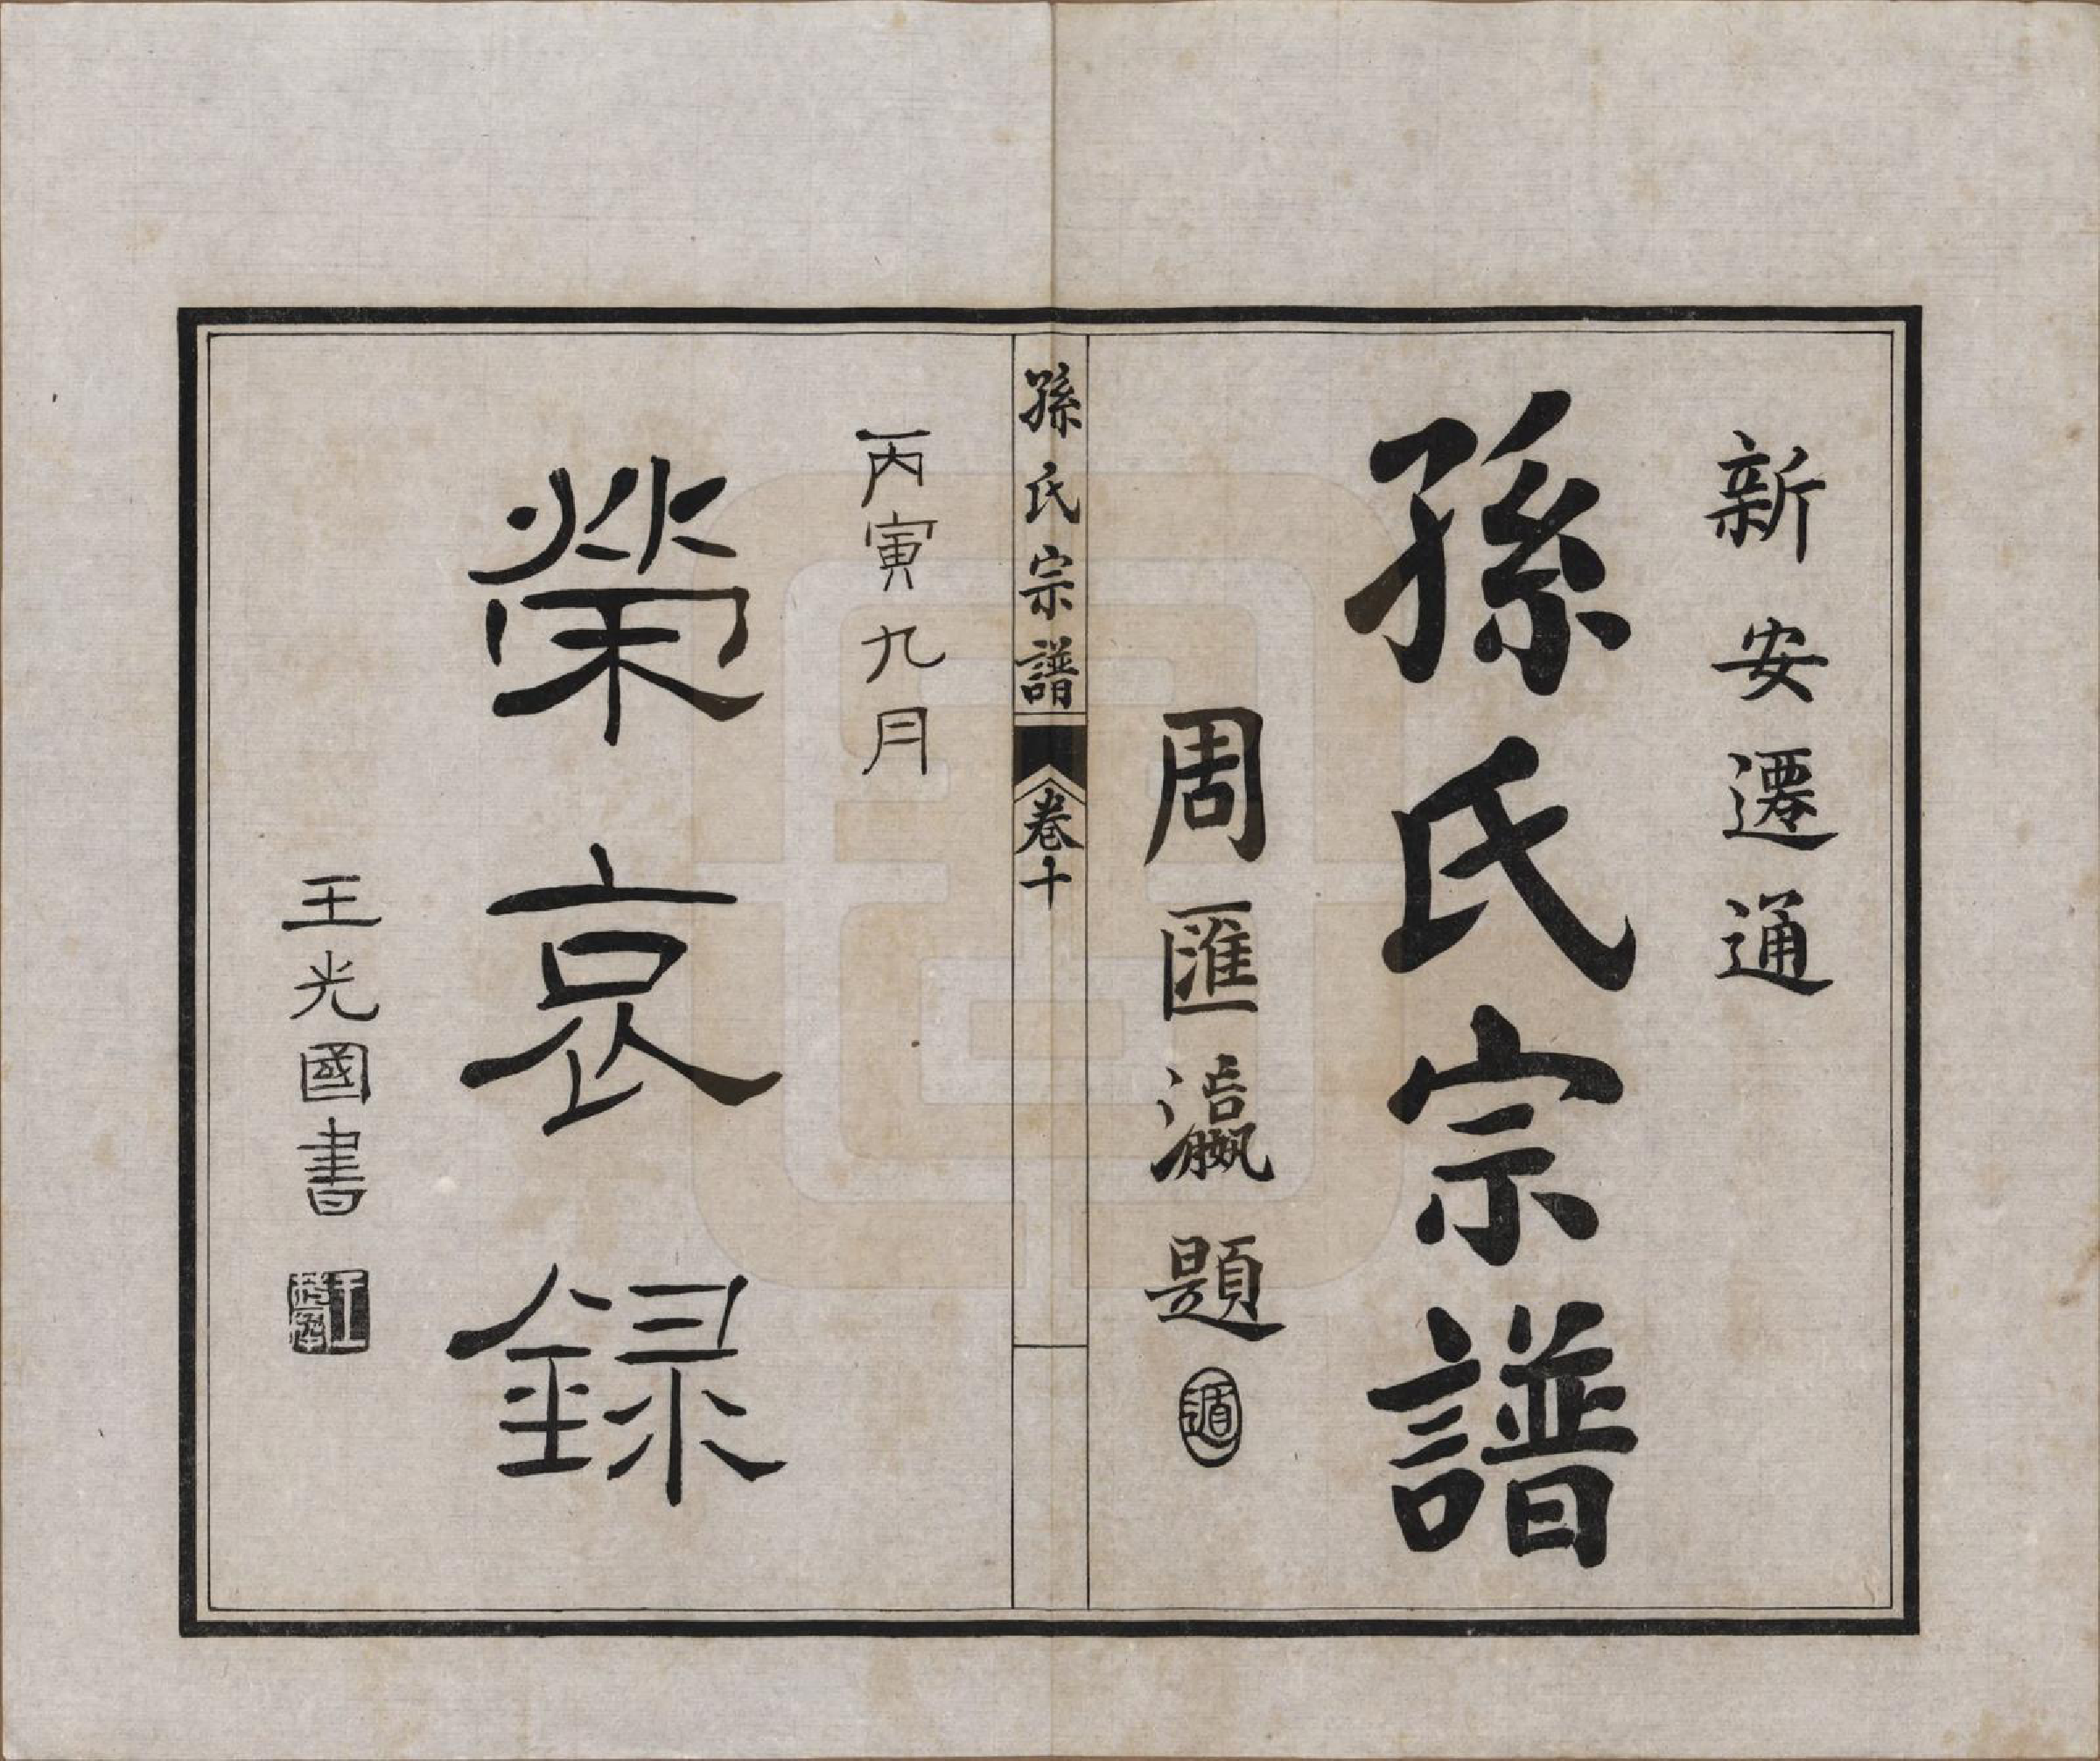 新安遷通
孫氏宗譜
周匯瀛題
遁
孫氏宗譜
卷十
丙寅九月
榮哀録
王光國書